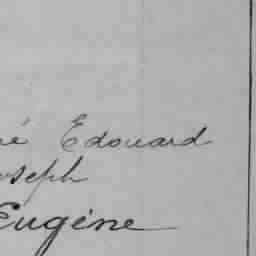 né Edouard
oseph
Eugène